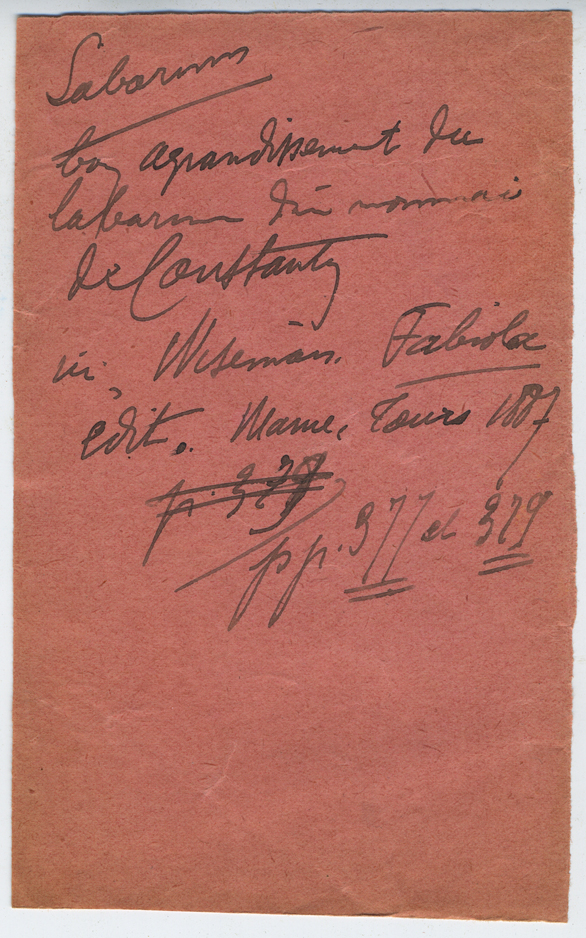 Labarum
bon agrandissement du
labarum du monnai
de Constantin
in, Wiseman. Fabiola
édit. Mame, Tours 1887
p. 379
pp. 377 et 379